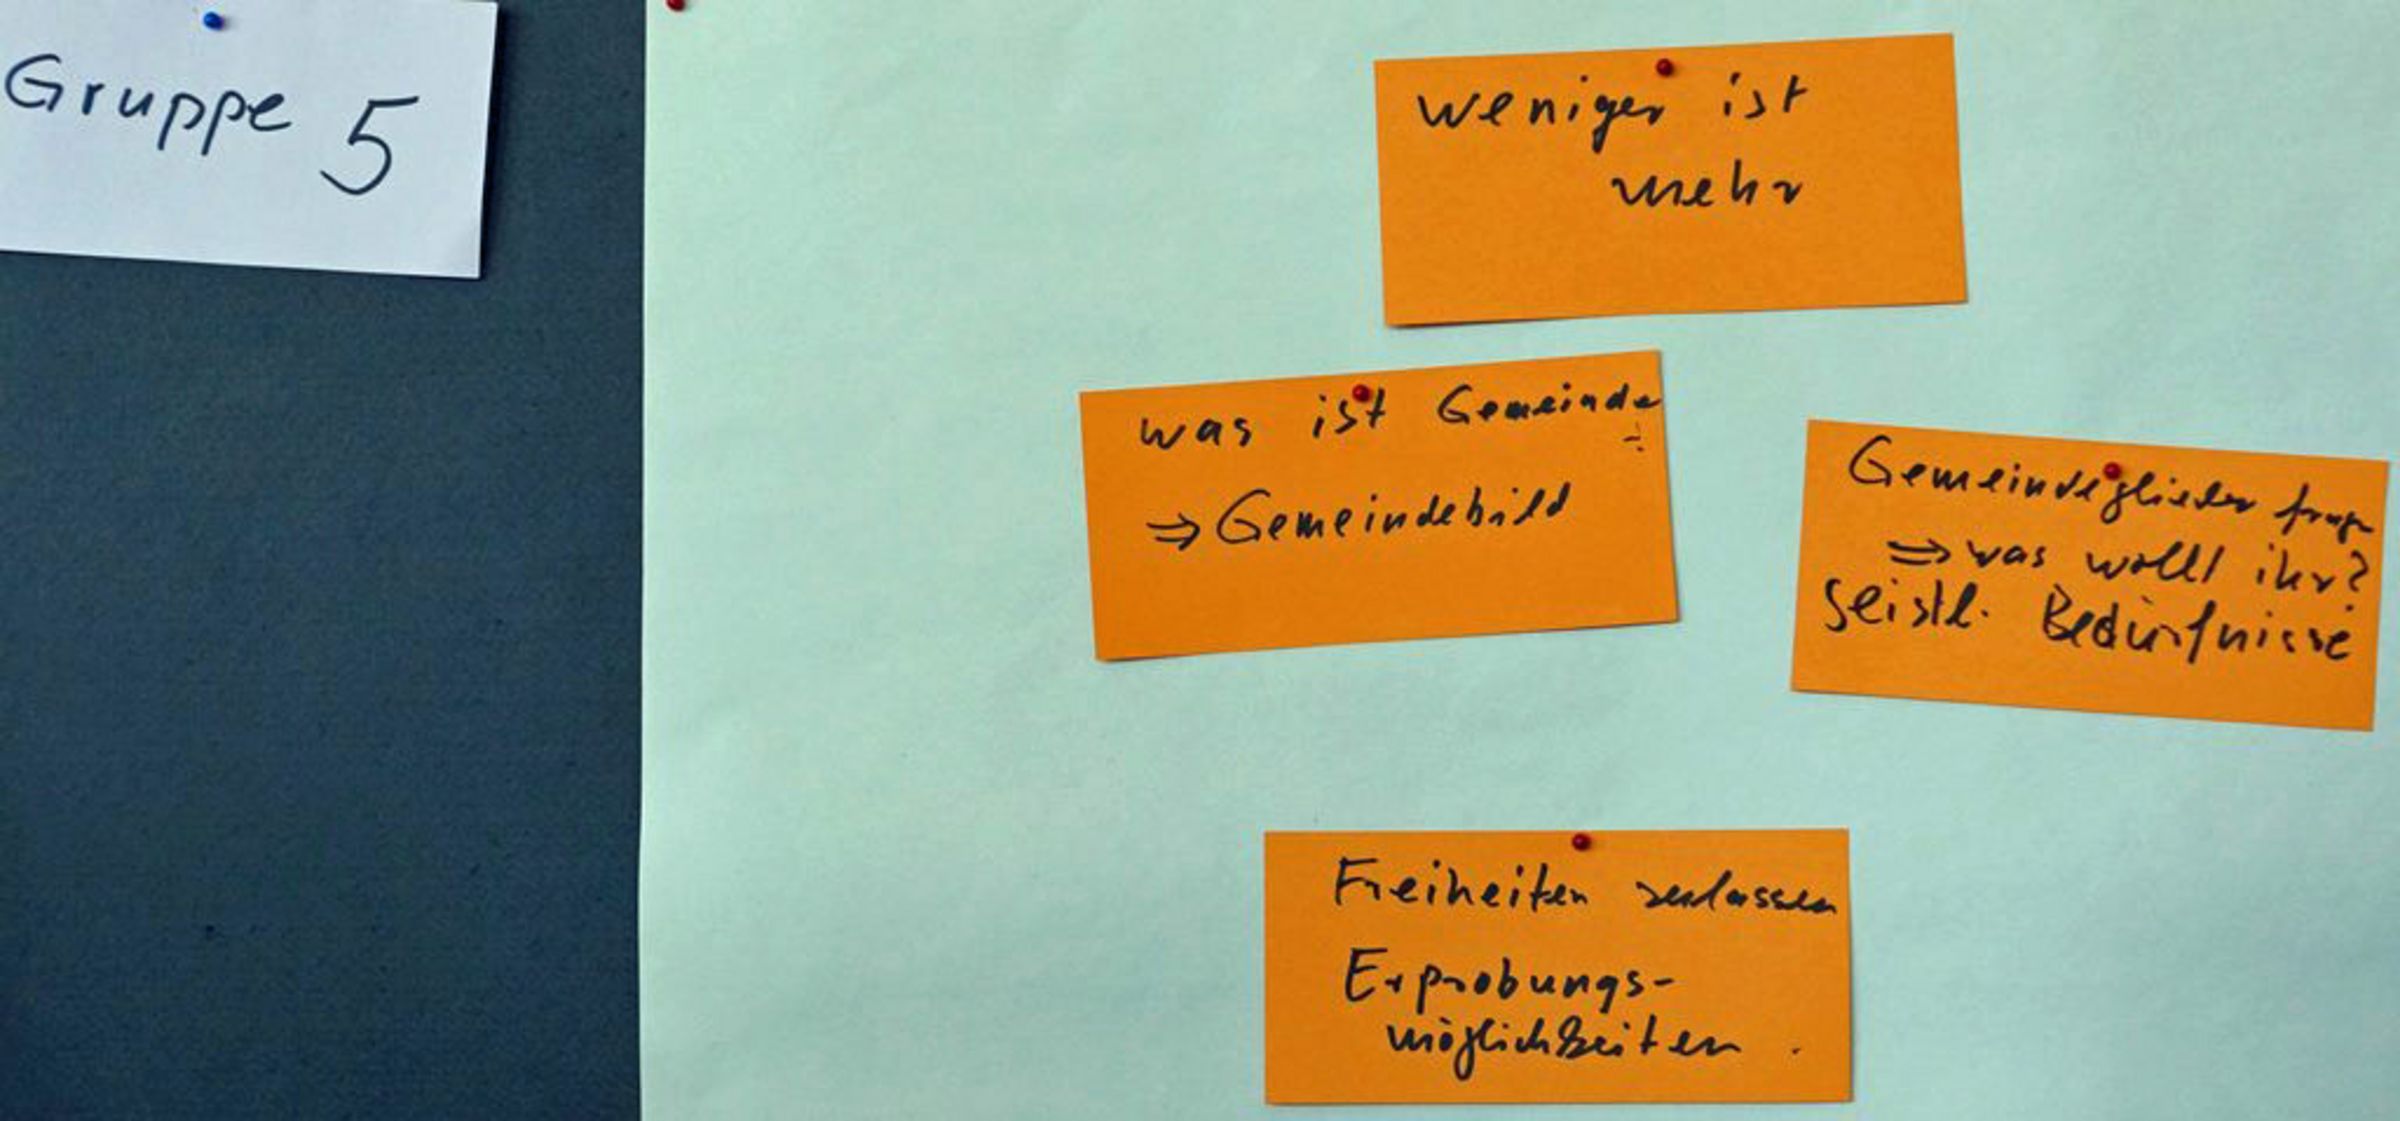 Gruppe 5
weniger ist
mehr
was ist Gemeinde
⇒ Gemeindebild
Gemeindeglieder fragen
⇒ was wollt ihr?
geistl. Bedürfnisse
Freiheiten zulassen
Erprobungs-
möglichkeiten.